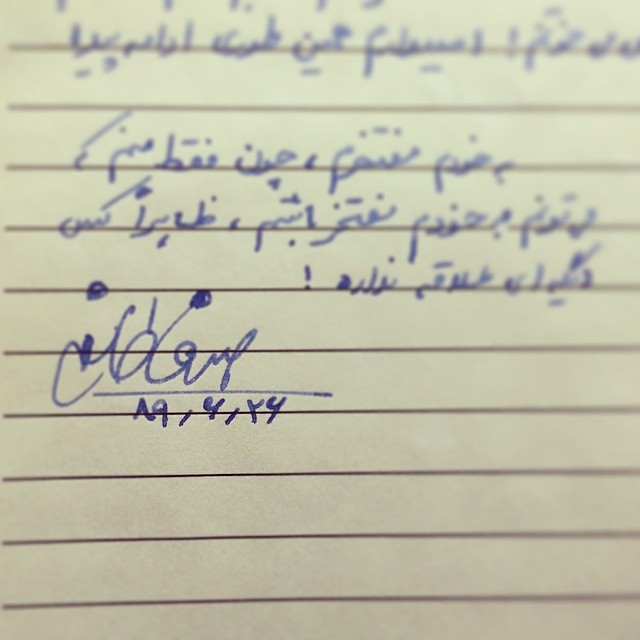 امیدوارم همین طوری ادامه پیدا
به خودم مفتخرم ، چون فقط منم که
می تونم به خودم مفتخر باشم ، ظاهراً کس
دیگه ای علاقه نداره !
۸۹,۶,۲۶